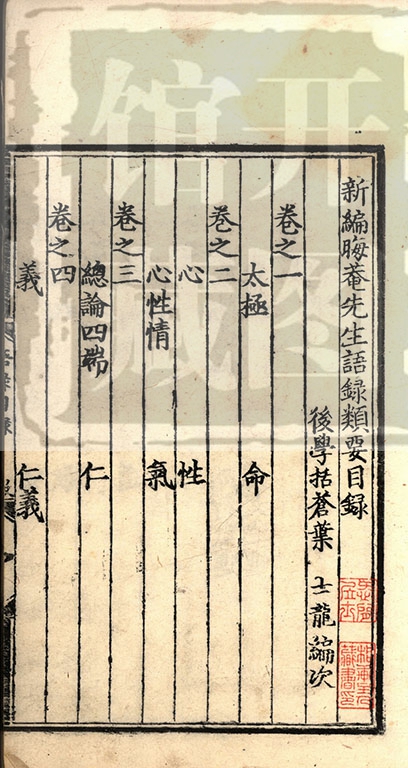 新編晦菴先生語録類要目録
後學括蒼葉 士龍編次
卷之一
太極 命
卷之二
心 性
心性情 氣
卷之三
總論四端 仁
卷之四
義 仁義